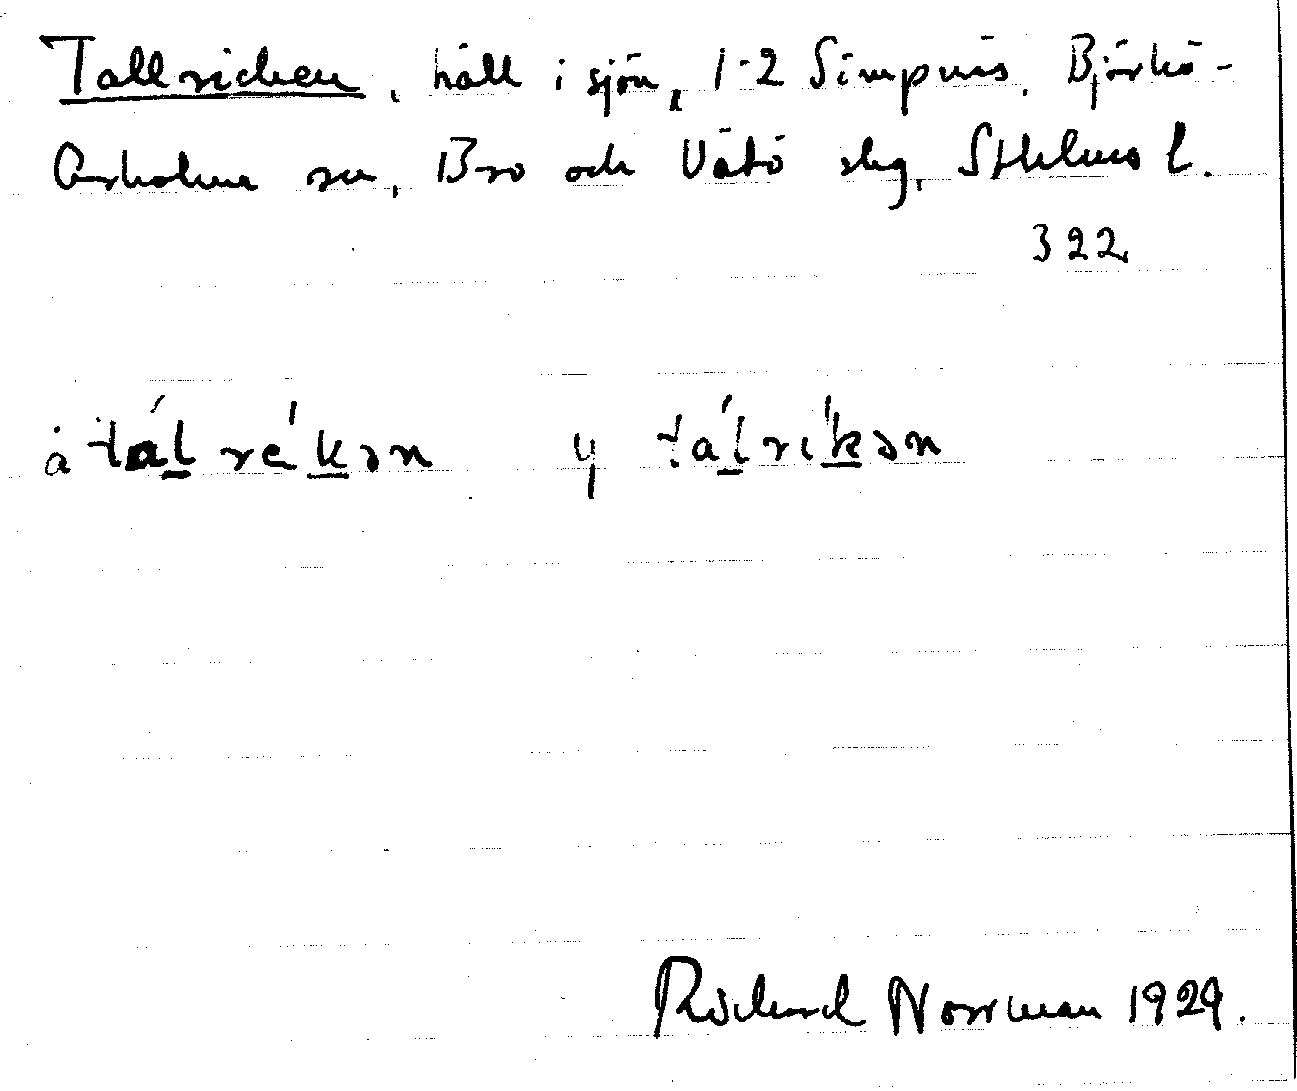 Tallricken, häll i sjön, 1-2 Simpnäs, Björkö-
Arholma sn, Bro och Vätö slg, Sthlms l.
322
å tálrékən y tálríkən
Richard Norrman 1929.